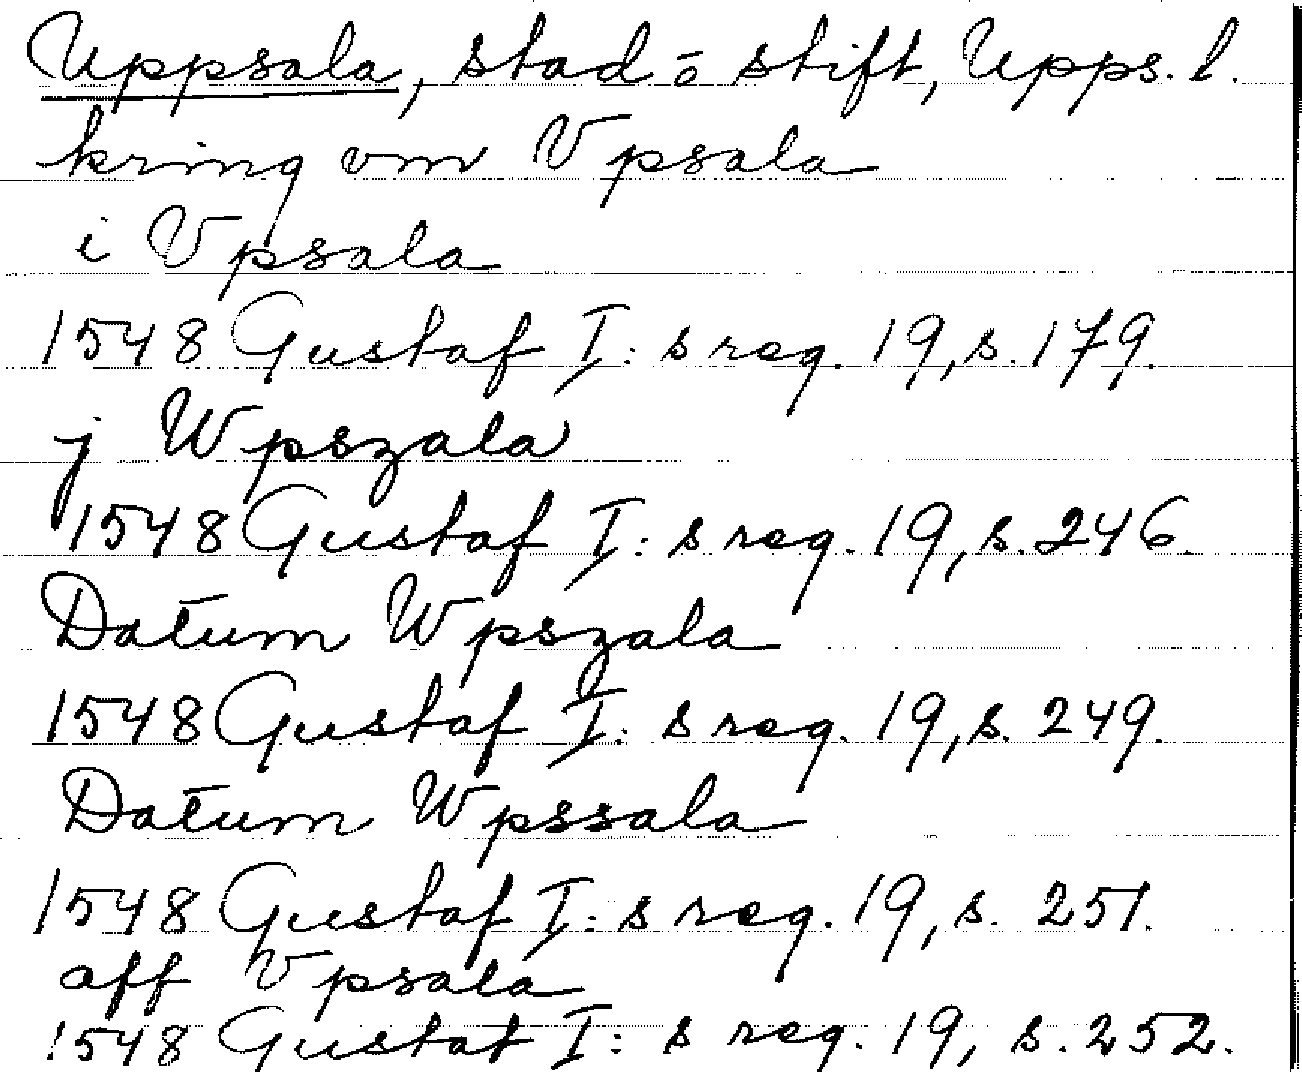 Uppsala, stad o stift, Upps. l.
kring vm Vpsala
i Vpsala
1548 Gustaf I:s reg. 19, s. 179.
j Wpszala
1548 Gustaf I:s reg. 19, s. 246.
Datum Wpszala
1548 Gustaf I:s reg. 19, s. 249.
Datum Wpssala
1548 Gustaf I:s reg. 19, s. 251.
aff Vpsala
1548 Gustaf I:s reg. 19, s. 252.